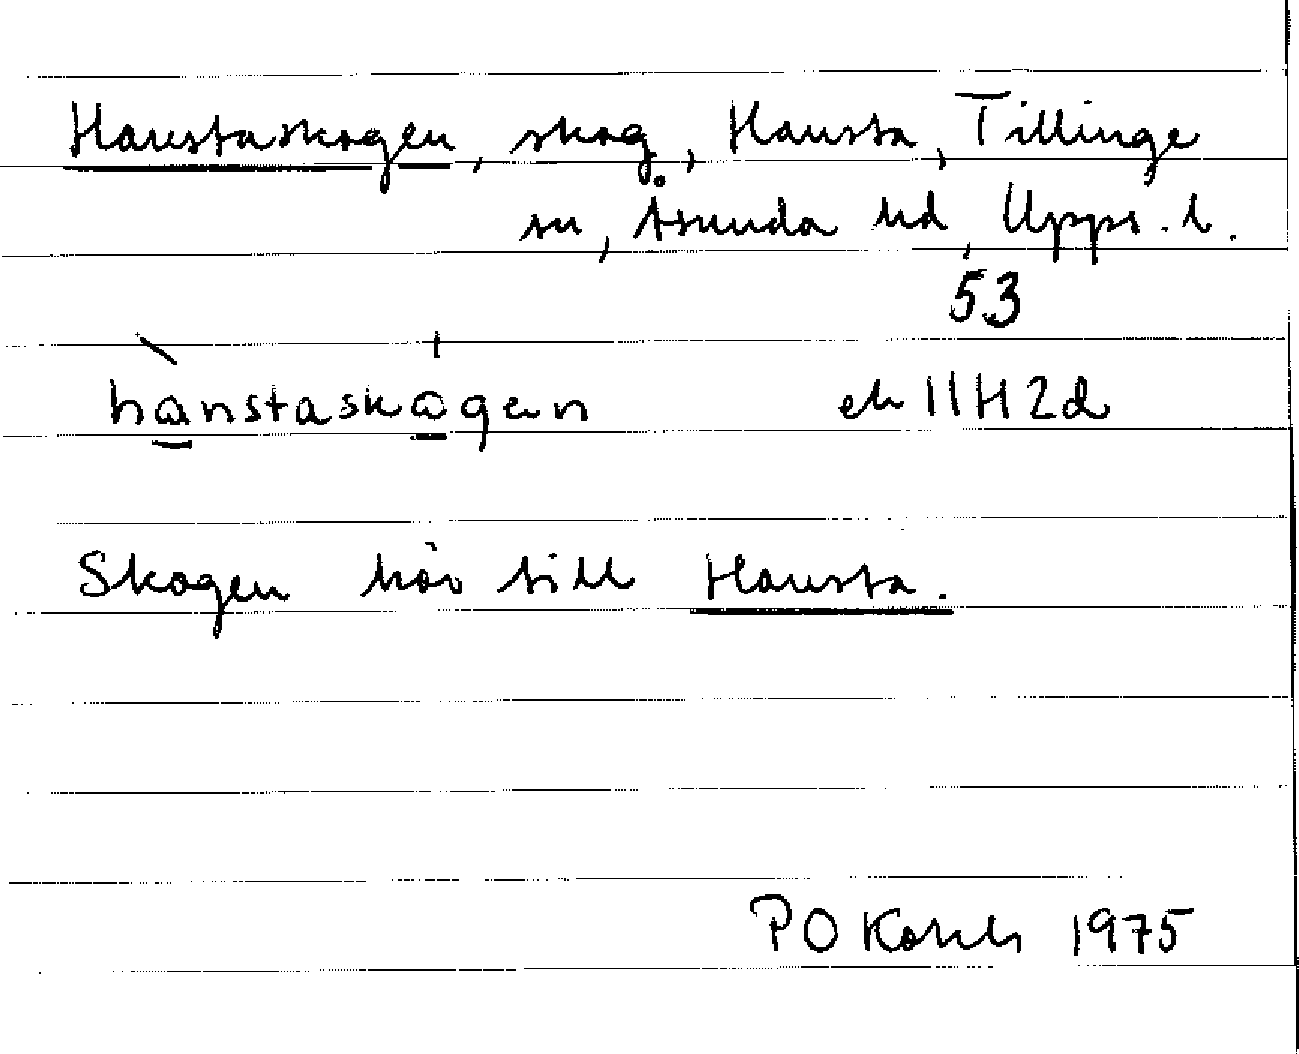 Hånstaskogen, skog, Hånsta, Tillinge
sn, Åsunda hd, Upps. l.
53
hanstaskogen ek 11H2d
Skogen hör till Hansta.
P O 1975